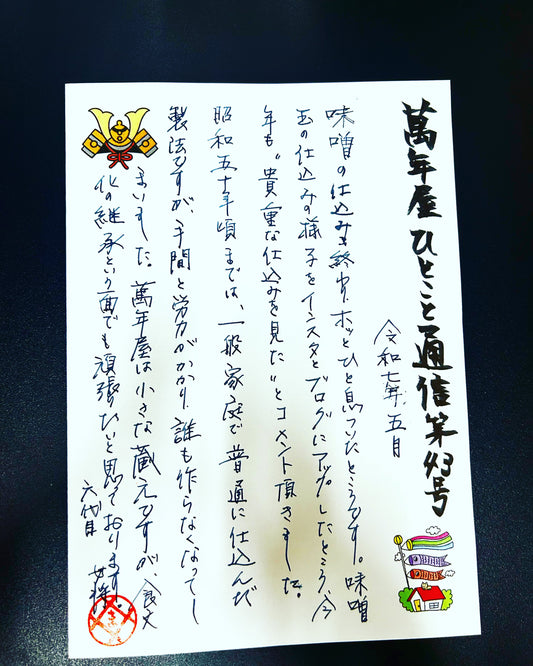 萬年屋ひとこと通信第43号
令和七年五月
味噌の仕込みも終わり、ホッとひと息ついたところです。味噌
玉の仕込みの様子をインスタとブログにアップしたところ、今
年も“貴重な仕込みを見た”とコメント頂きました。
昭和五十年頃までは、一般家庭で普通に仕込んだ
製法ですが、手間と労力がかかり、誰も作らなくなってし
まいました。萬年屋は小さな蔵元ですが、食文
化の継承という面でも頑張りたいと思っております。
六代目